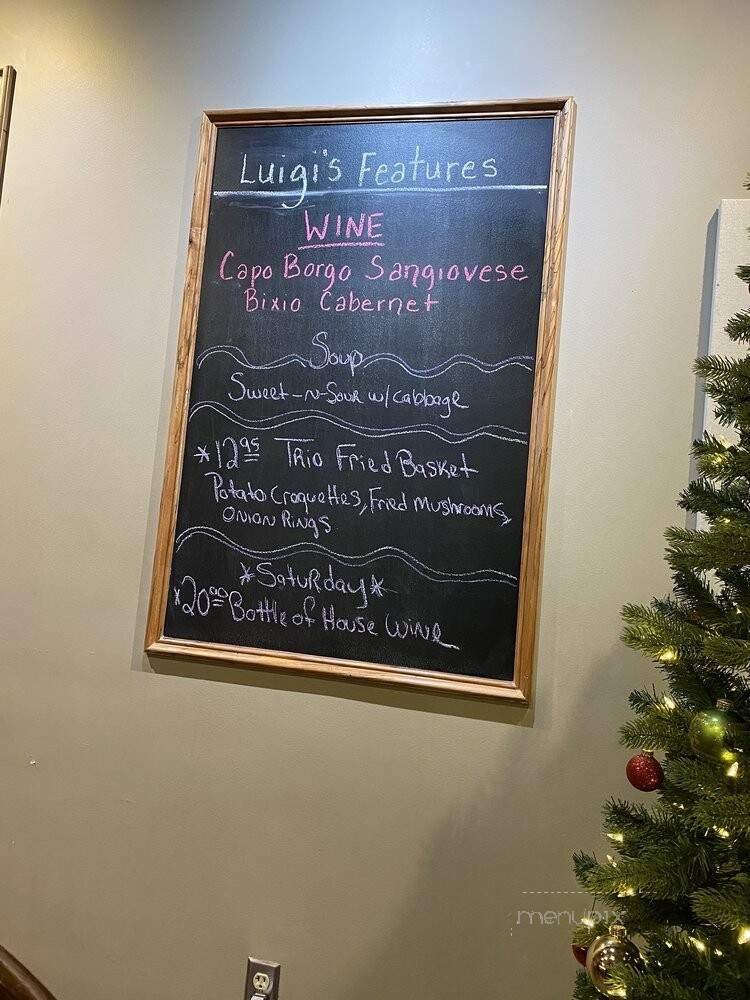 Luigi's Features
WINE
Capo Borgo Sangiovese
Bixio Cabernet
Soup
Sweet-N-Sour w/ cabbage
*12.95 Trio Fried Basket
Potato Croquettes, Fried Mushrooms,
Onion Rings
*Saturday*
*20.00 Bottle of House Wine
menupix